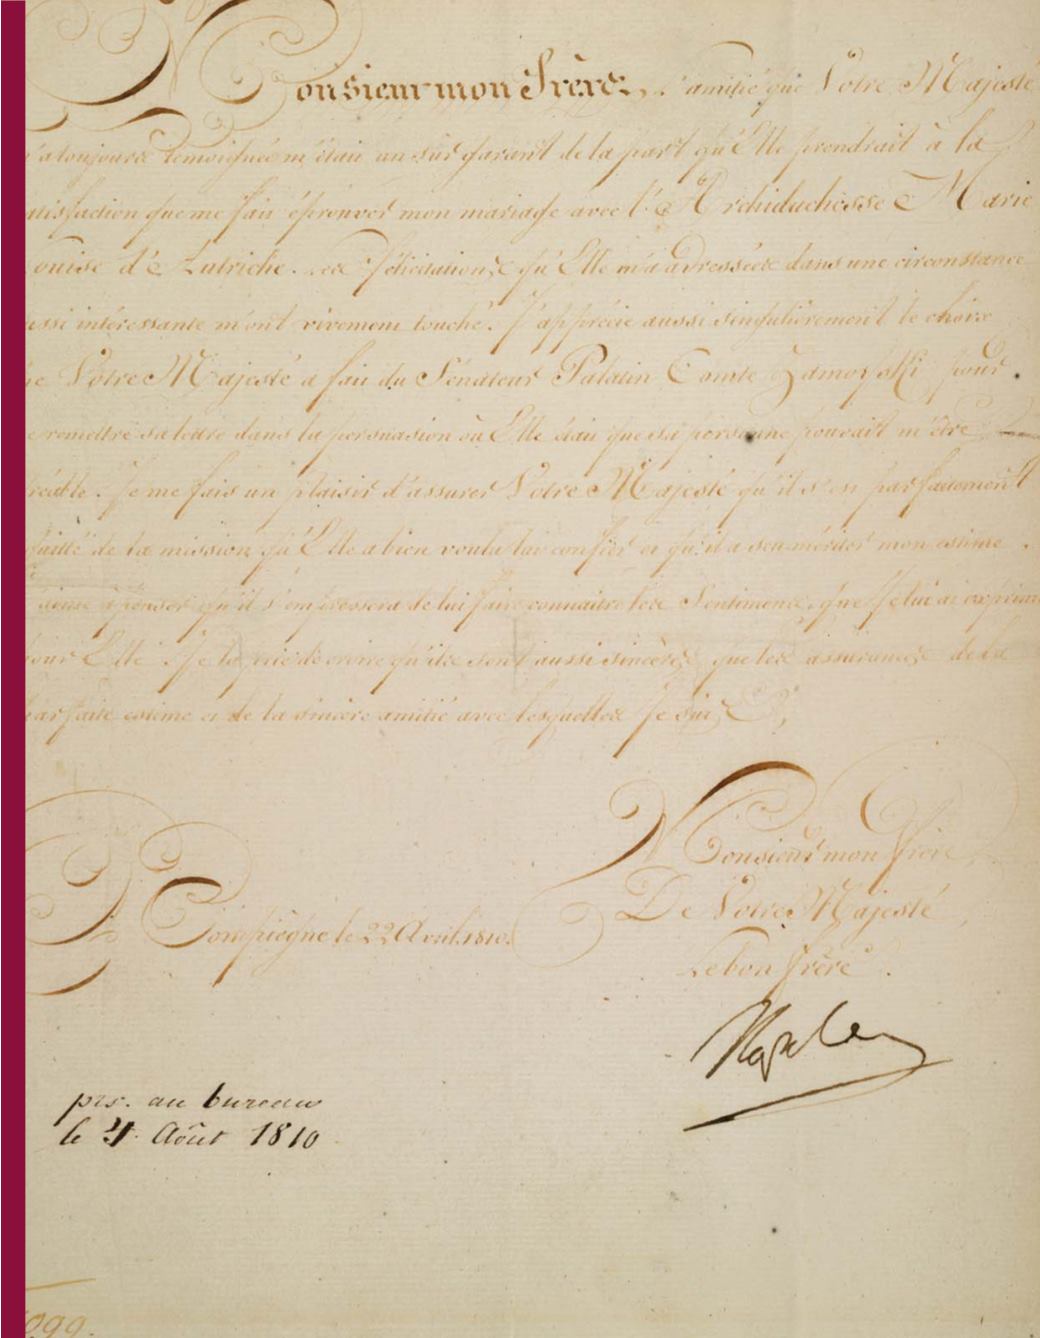 Monsieur mon Frère, L'amitié que Votre Majesté
m'a toujours témoignée m'était un sûr garant de la part qu'Elle prendrait à la
atisfaction que me fait éprouver mon mariage avec l'Archiduchesse Marie
ouise d'Autriche. Les félicitations qu'Elle m'a adressées dans une circonstance
ussi intéressante m'ont vivement touché. J'apprécie aussi singulièrement le choix
ue Votre Majesté a fait du Sénateur Palatin Comte Zamoyski pour
e remettre sa lettre dans la persuasion où Elle était que sa personne pouvait m'être
réable. Je me fais un plaisir d'assurer Votre Majesté qu'il s'est parfaitement
quitté de la mission qu'Elle a bien voulu lui confier et qu'il a su mériter mon estime.
aime à penser qu'il s'empressera de lui faire connaître les Sentimens que Je lui ai exprimé
our Elle. Je la prie de croire qu'ils sont aussi sincères que les assurances de la
arfaite estime et de la sincère amitié avec lesquelles Je suis,
Monsieur mon Frère,
De Votre Majesté,
Compiègne le 22 Avril 1810.
Le bon frère.
Napoleon
prs. au bureau
le 4 Août 1810
099.